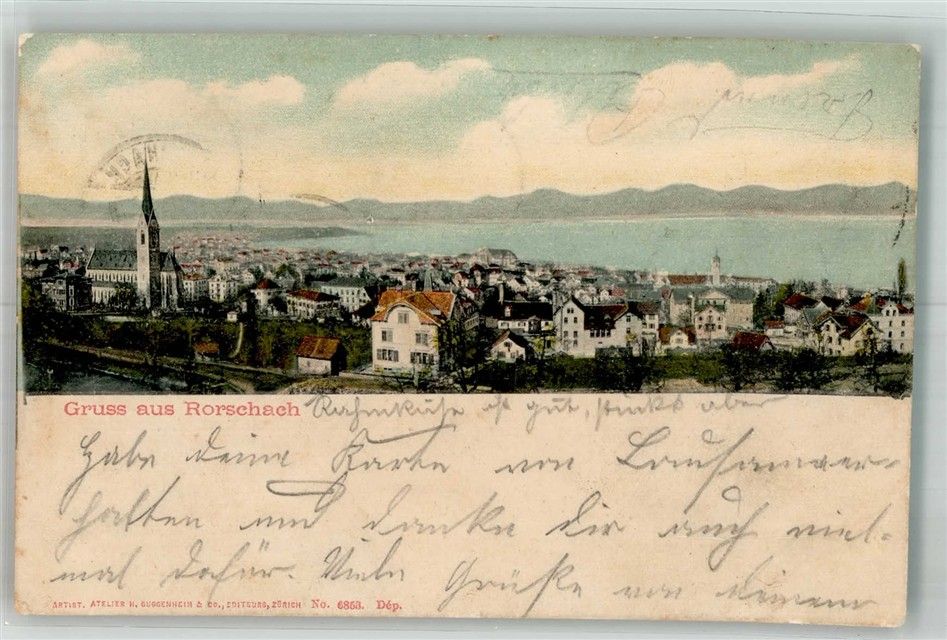 Gruss aus Rorschach Rahmkuhe ist gut, stinkt aber
Habe deine Karte von Lausanne er-
halten und danke dir auch viel-
mal dafür. Viele Grüße von deinem
ARTIST. ATELIER H. GUGGENHEIM & CO., EDITEURS, ZÜRICH No. 6853. Dép.